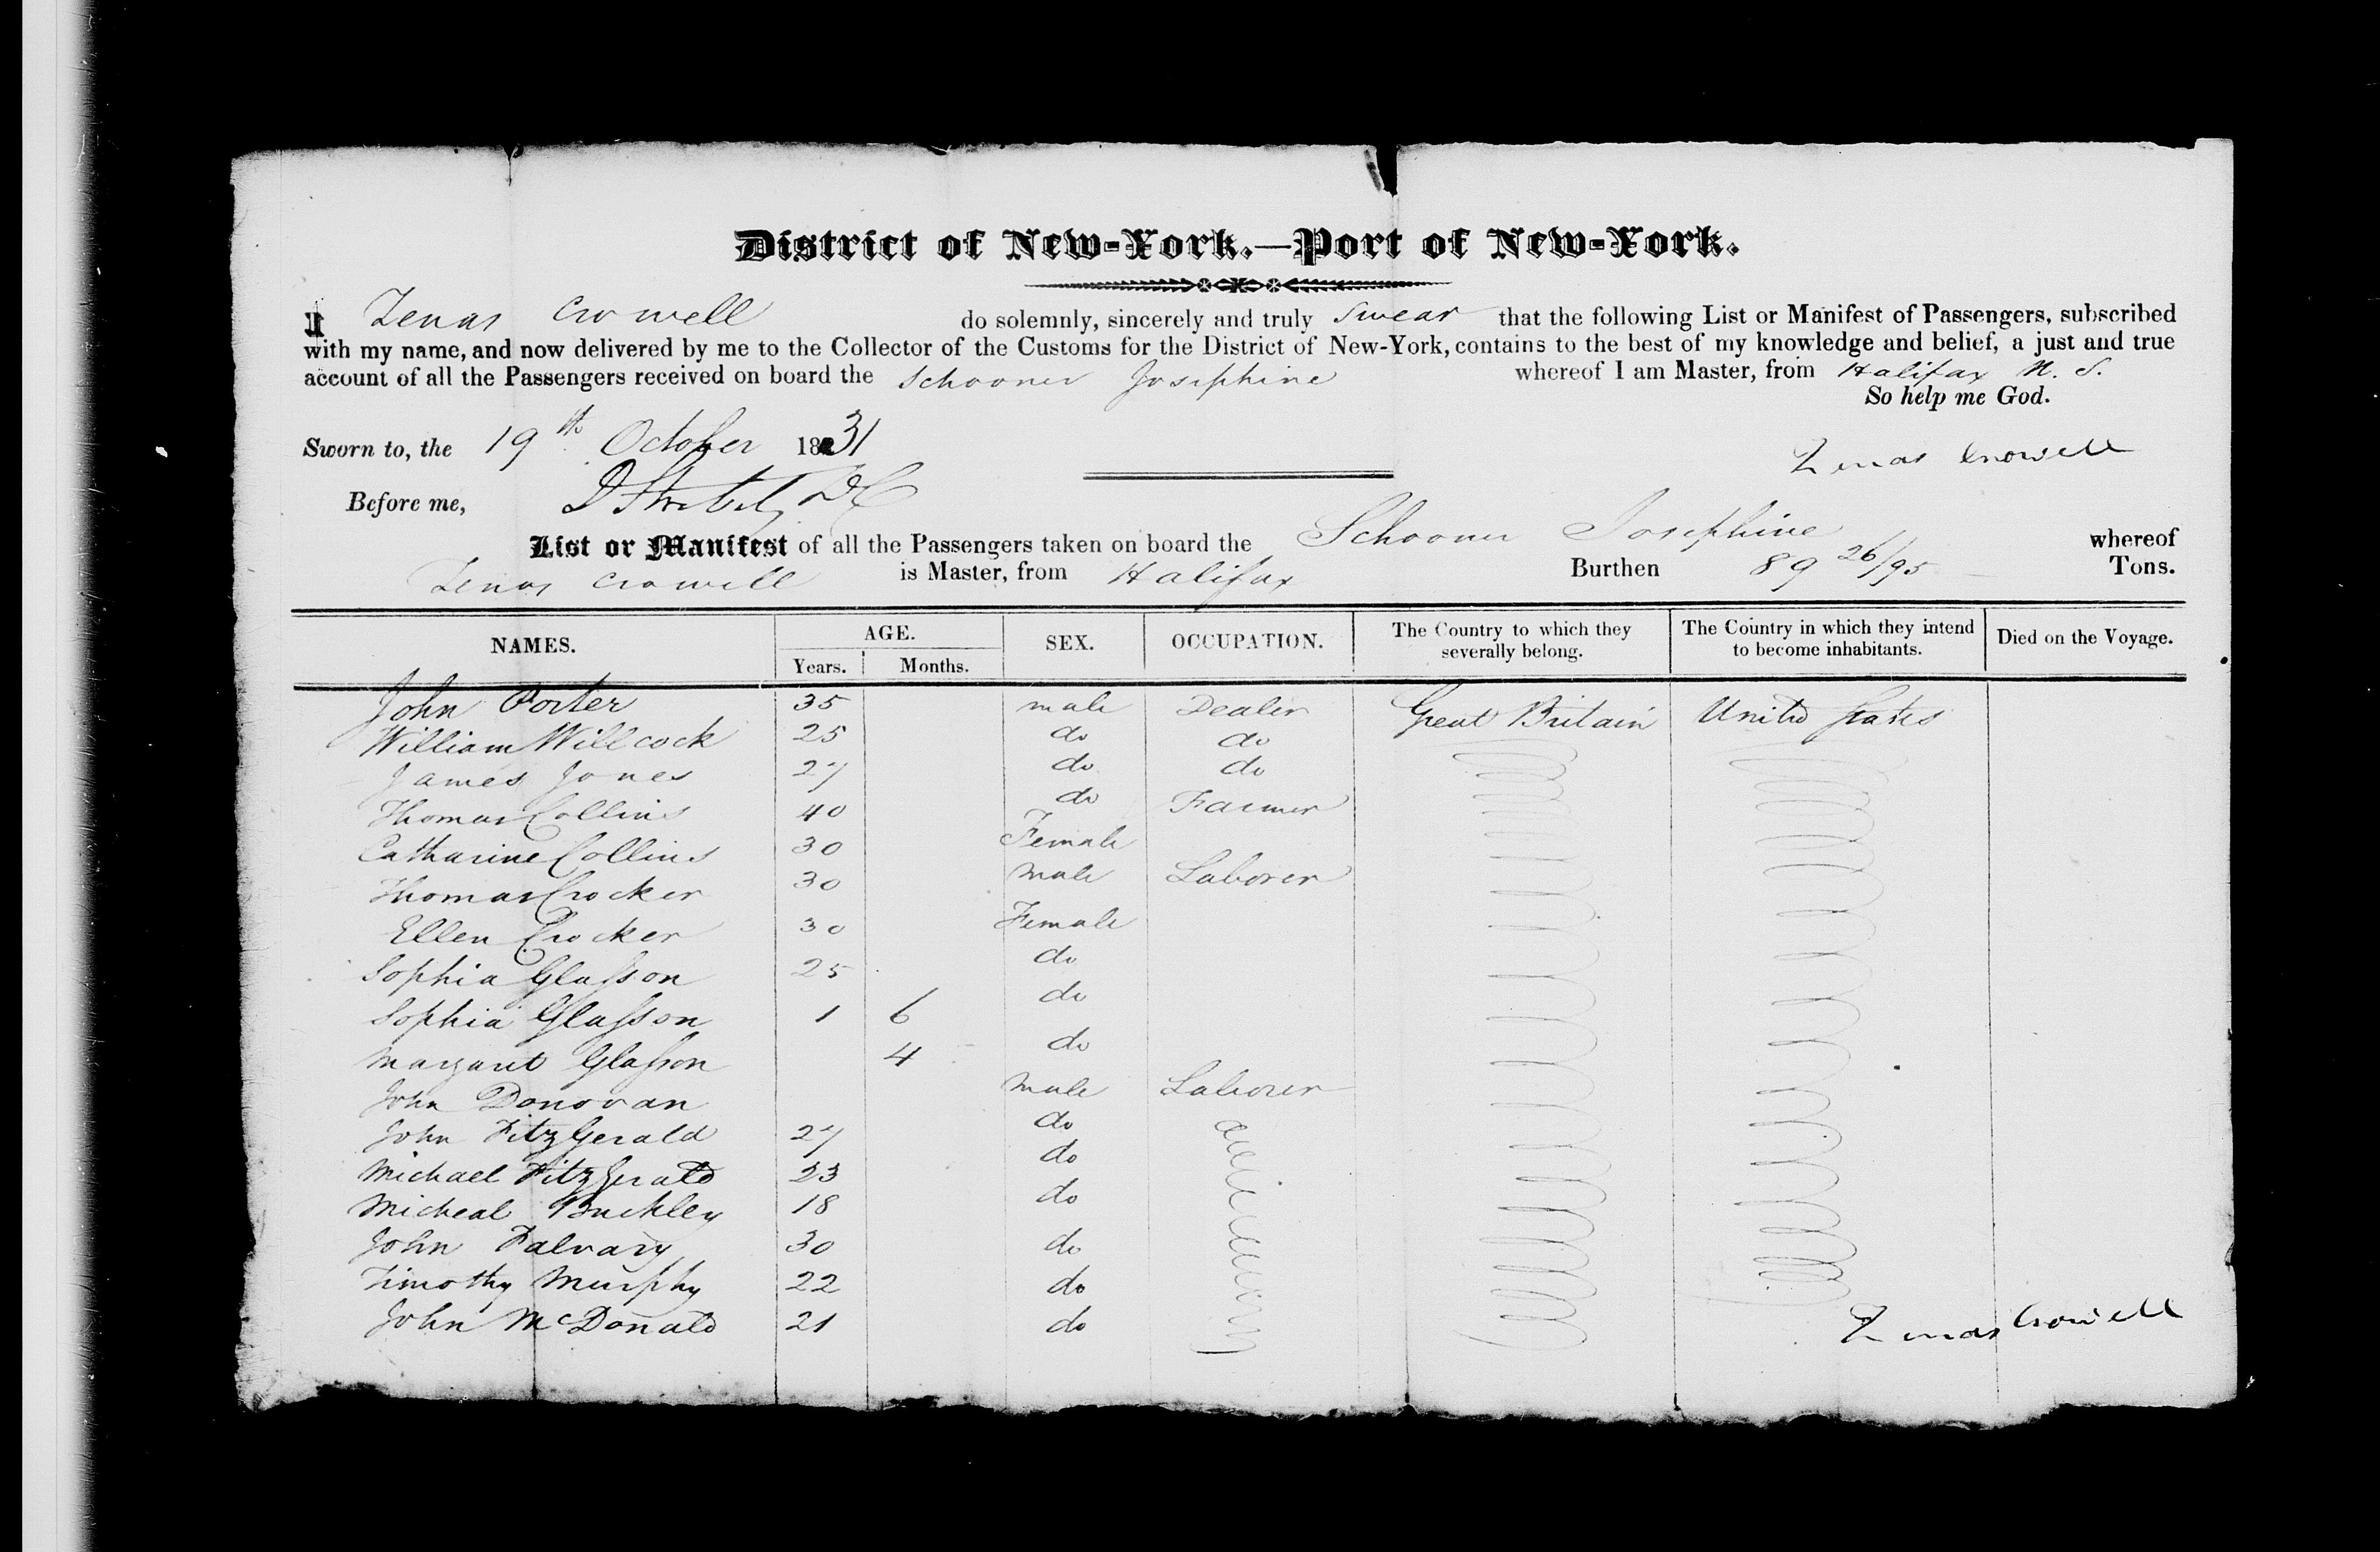 District of New-York.—Port of New-York.
I Zenas Crowell do solemnly, sincerely and truly swear that the following List or Manifest of Passengers, subscribed
with my name, and now delivered by me to the Collector of the Customs for the District of New-York, contains to the best of my knowledge and belief, a just and true
account of all the Passengers received on board the Schooner Josephine whereof I am Master, from Halifax N. S.
So help me God.
Sworn to, the 19th October 1831
Zenas Crowell
Before me, D
List or Manifest of all the Passengers taken on board the Schooner Josephine whereof
Zenas Crowell is Master, from Halifax Burthen 89 26/95 Tons.
NAMES. AGE. SEX. OCCUPATION. The Country to which they severally belong. The Country in which they intend to become inhabitants. Died on the Voyage.
Years. Months.
John Porter 35 male Dealer Great Britain United States
William Willcock 25 do do
James Jones 27 do do
Thomas Collins 40 do Farmer
Catharine Collins 30 Female
Thomas Crocker 30 male Laborer
Ellen Crocker 30 Female
Sophia Glasson 25 do
Sophia Glasson 1 6 do
Margaret Glasson 4 do
John Donovan male Laborer
John FitzGerald 27 do
Michael FitzGerald 23 do
Micheal Buckley 18 do
John Falvary 30 do
Timothy Murphy 22 do
John McDonald 21 do
Zenas Crowell